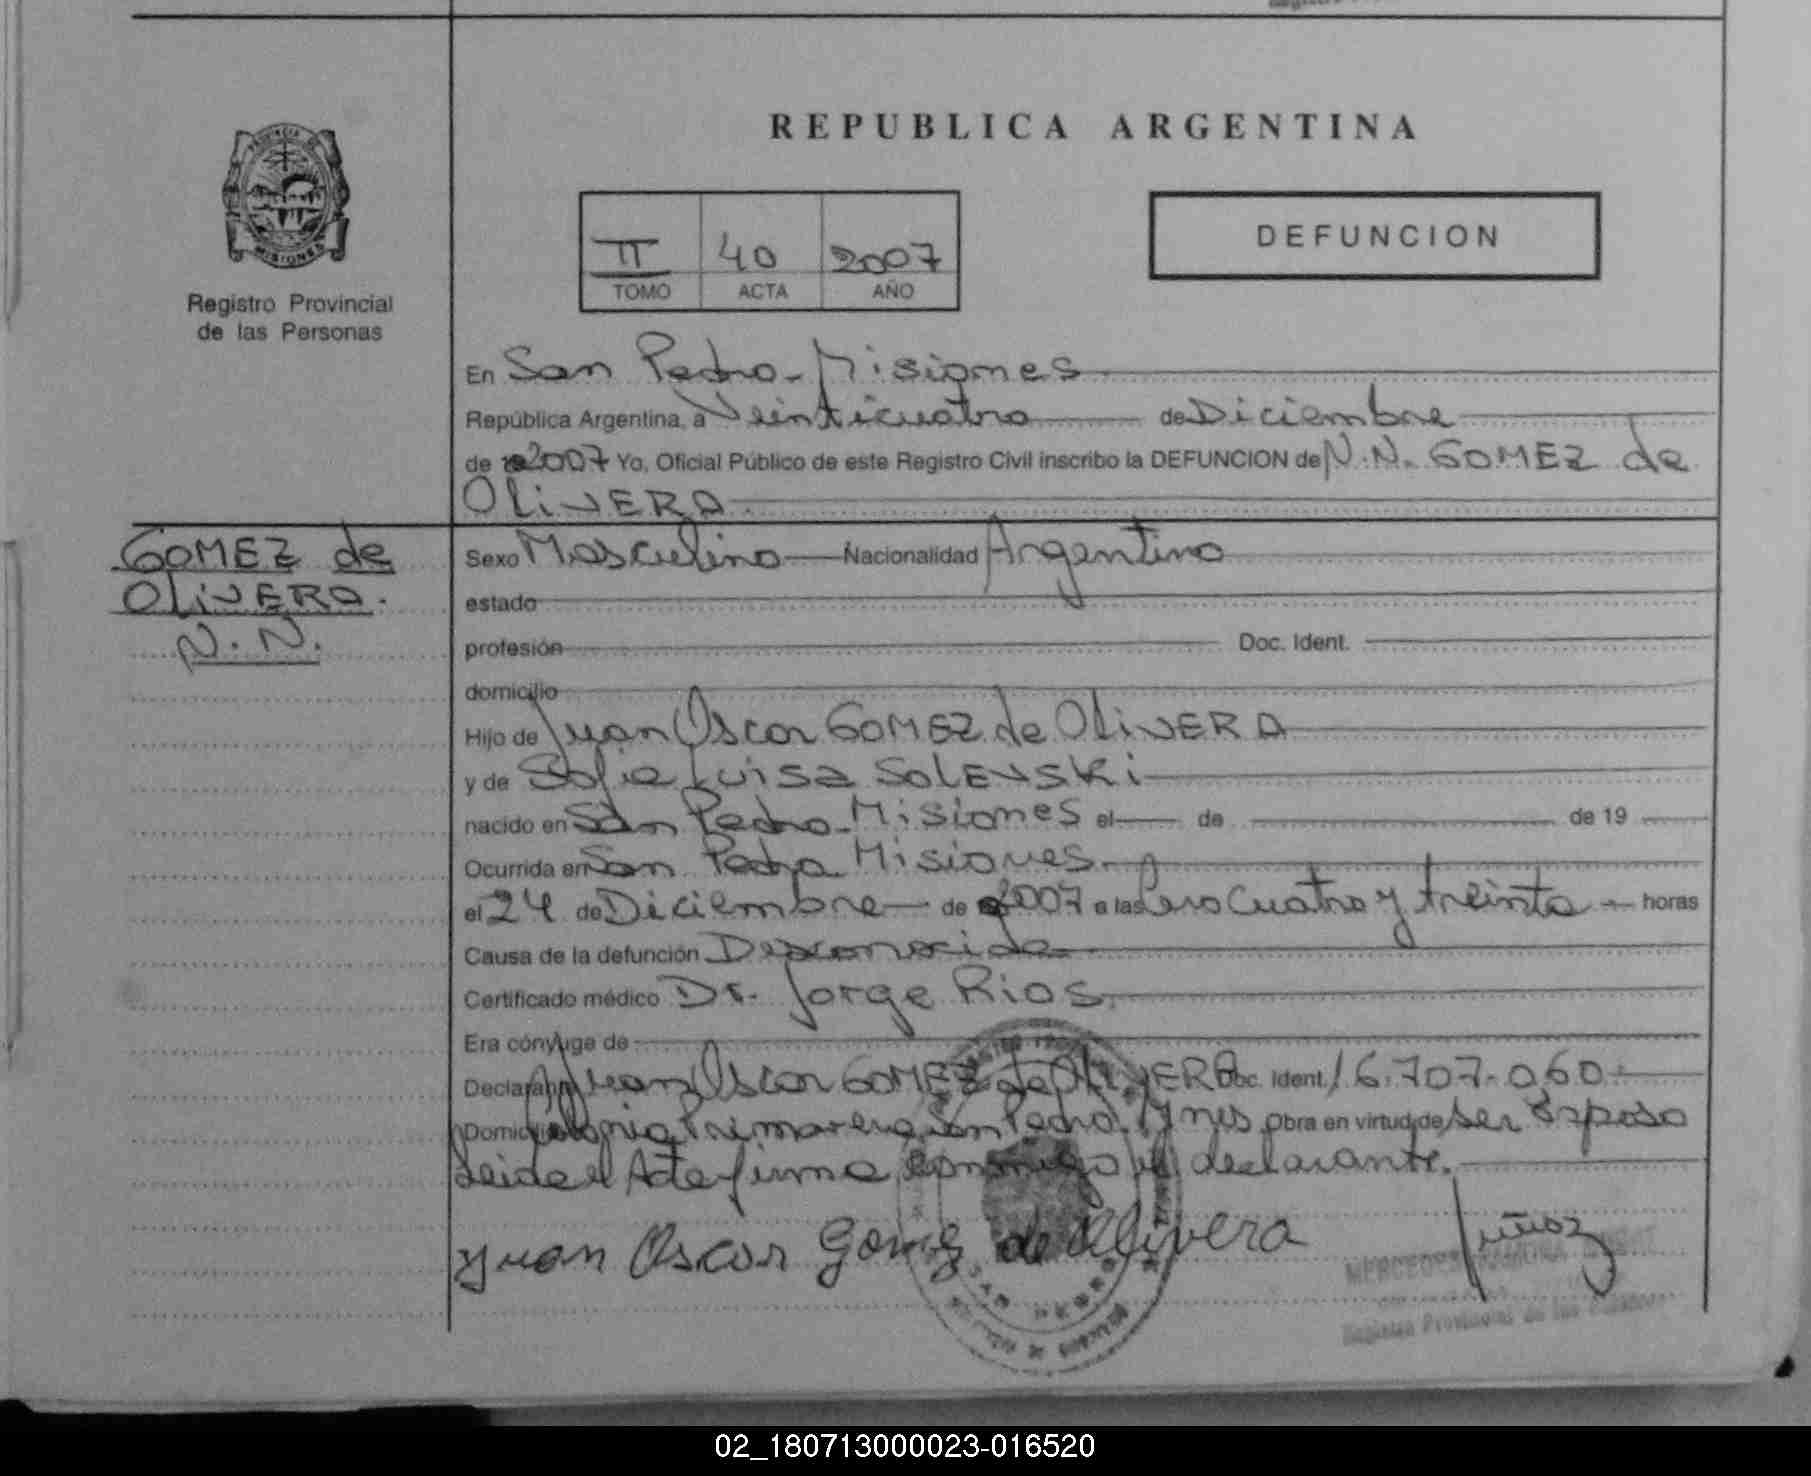 REPUBLICA ARGENTINA
PROVINCIA DE
MISIONES
Registro Provincial
de las Personas
DEFUNCION
II 40 2007
TOMO ACTA AÑO
En San Pedro - Misiones
República Argentina, a Veinticuatro de Diciembre
de 2007 Yo, Oficial Público de este Registro Civil inscribo la DEFUNCION de N.N. GOMEZ de
OLiVERA
GOMEZ de
OLiVERA.
N. N.
Sexo Masculino Nacionalidad Argentino
estado
profesión Doc. Ident.
domicilio
Hijo de Juan Oscar GOMEZ de OLiVERA
y de Sofia Luisa SOLEVSKi
nacido en San Pedro - Misiones el de de 19
Ocurrida en San Pedro Misiones
el 24 de Diciembre de 2007 a las Cero Cuatro y treinta horas
Causa de la defunción Desconocida
Certificado médico Dr. Jorge Rios
Era cónyuge de
Declarante Juan Oscar GOMEZ de OLiVERA Doc. Ident. 16.707.060
Domicilio Colonia Primavera San Pedro Mnes Obra en virtud de ser Esposo
Leida el Acta firma conmigo el declarante.
Juan Oscar Gomez de Olivera
Registro Provincial de las Personas
02_180713000023-016520